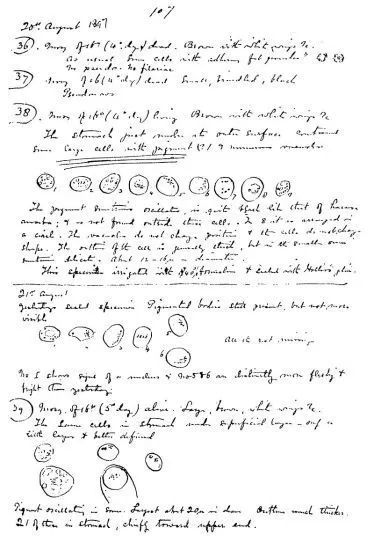 107
20th August 1897
36. Mosq. of 16th (4th day) dead. Brown with white wings &c.
As usual. Some cells with
No pseudo. No filariae
37 Mosq. of 16 (4th day) dead Small, brindled, black
38. Mosq. of 16th (4th day) living Brown with white wings &c.
The stomach just under its outer surface contained
some large cells with pigment (21) & numerous vacuoles
1 2 3
The pigment sometimes oscillates, is quite black like that of haem.
amoeba; & is not found outside these cells. In 8 it is arranged in
a circle. The vacuoles do not change position & the cells do not change
shape. The outline of the cell is generally thick, but in the smaller ones
sometimes delicate. About 12-16µ in diameter.
This specimen irrigated with formalin & sealed with
21st August
Yesterday's sealed specimen Pigmented bodies still present, but not more
visible
5
4
6
No. 5 shows signs of a nucleus & No 5 & 6 are distinctly more fleshy &
bright than yesterday.
39 Mosq. of 16th (5th day) alive. Large, brown, white wings &c.
The same cells in stomach under superficial layer - only
larger & better defined
Pigment oscillating in some. Largest about 20µ in diam Outlines much thicker.
21 of them in stomach, chiefly toward upper end.